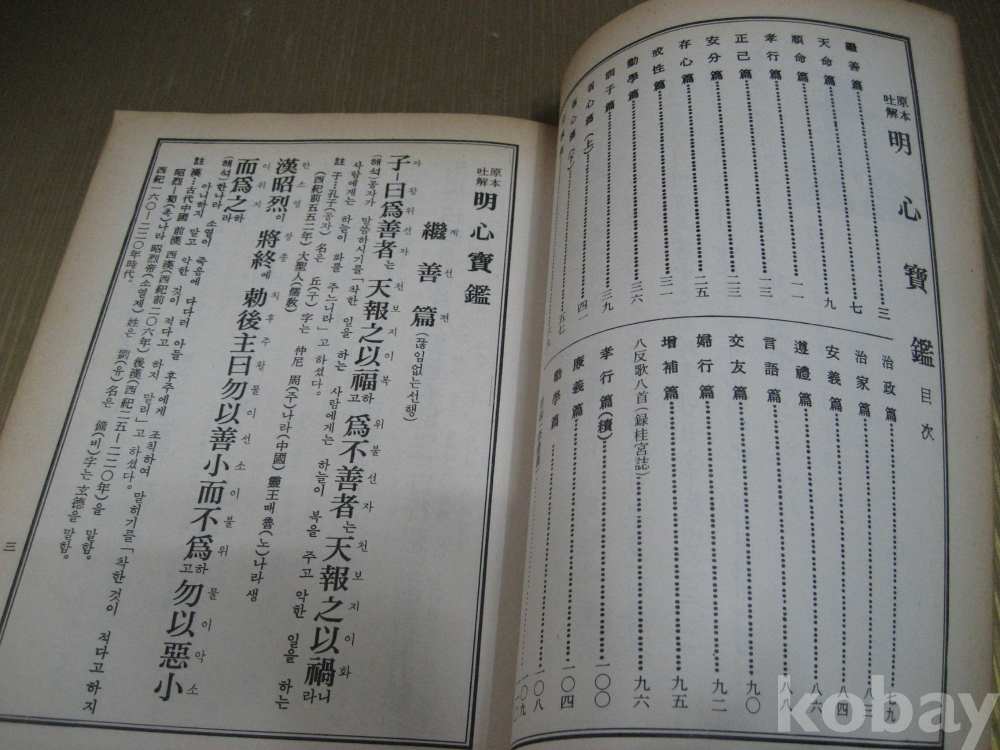 原本
吐解
明心寶鑑 目次
繼善篇…………三
天命篇…………七
順命篇…………九
孝行篇…………一一
正己篇…………一三
安分篇…………二三
存心篇…………二五
戒性篇…………三一
勸學篇…………三六
訓子篇…………三九
省心篇(上)…………四一
省心篇(下)…………五七
治政篇…………七九
治家篇…………八三
安義篇…………八四
遵禮篇…………八六
言語篇…………八八
交友篇…………九〇
婦行篇…………九二
增補篇…………九五
八反歌八首(録桂宮誌)…………九六
孝行篇(續)…………一〇〇
廉義篇…………一〇四
勸學篇…………一〇八
一〇九
原本
吐解
明心寶鑑
繼善篇(끊임없는선행)
계선편
子ㅣ曰爲善者는 天報之以福하고 爲不善者는 天報之以禍니라
자 왈위선자 천보지이복 위불선자 천보지이화
(해석) 공자가 말씀하시기를 「착한 일을 하는 사람에게는 하늘이 복을 주고 악한 일을 하는
사람에게는 하늘이 화를 주느니라」고 하셨다.
註 子…孔子(공자) 名은 丘(구) 字는 仲尼 周(주)나라(中國) 靈王때 魯(노)나라 생
(西紀前五五二年) 大聖人(儒教)
漢昭烈이 將終에 勅後主曰勿以善小而不爲하고 勿以惡小
한소열 장종 칙후주왈물이선소이불위 물이악소
而爲之하라
이위지
(해석) 한나라 소열이 죽음에 다다러 아들 후주에게 조칙하여 말하기를 「착한것이 적다고 하지
아니하지 말고 악한 것이 적다고 하지 말라」고 하셨다.
註 漢…古代中國 前漢(西紀前二〇六年) 後漢(西紀二五ㅣ二二〇年)을 말함.
昭烈ㅣ蜀(촉)나라 昭烈帝(소열제) 姓은 劉(유) 名은 備(비) 字는 玄德을 말함.
西紀一六〇ㅣ二二〇年時代.
三
kobay